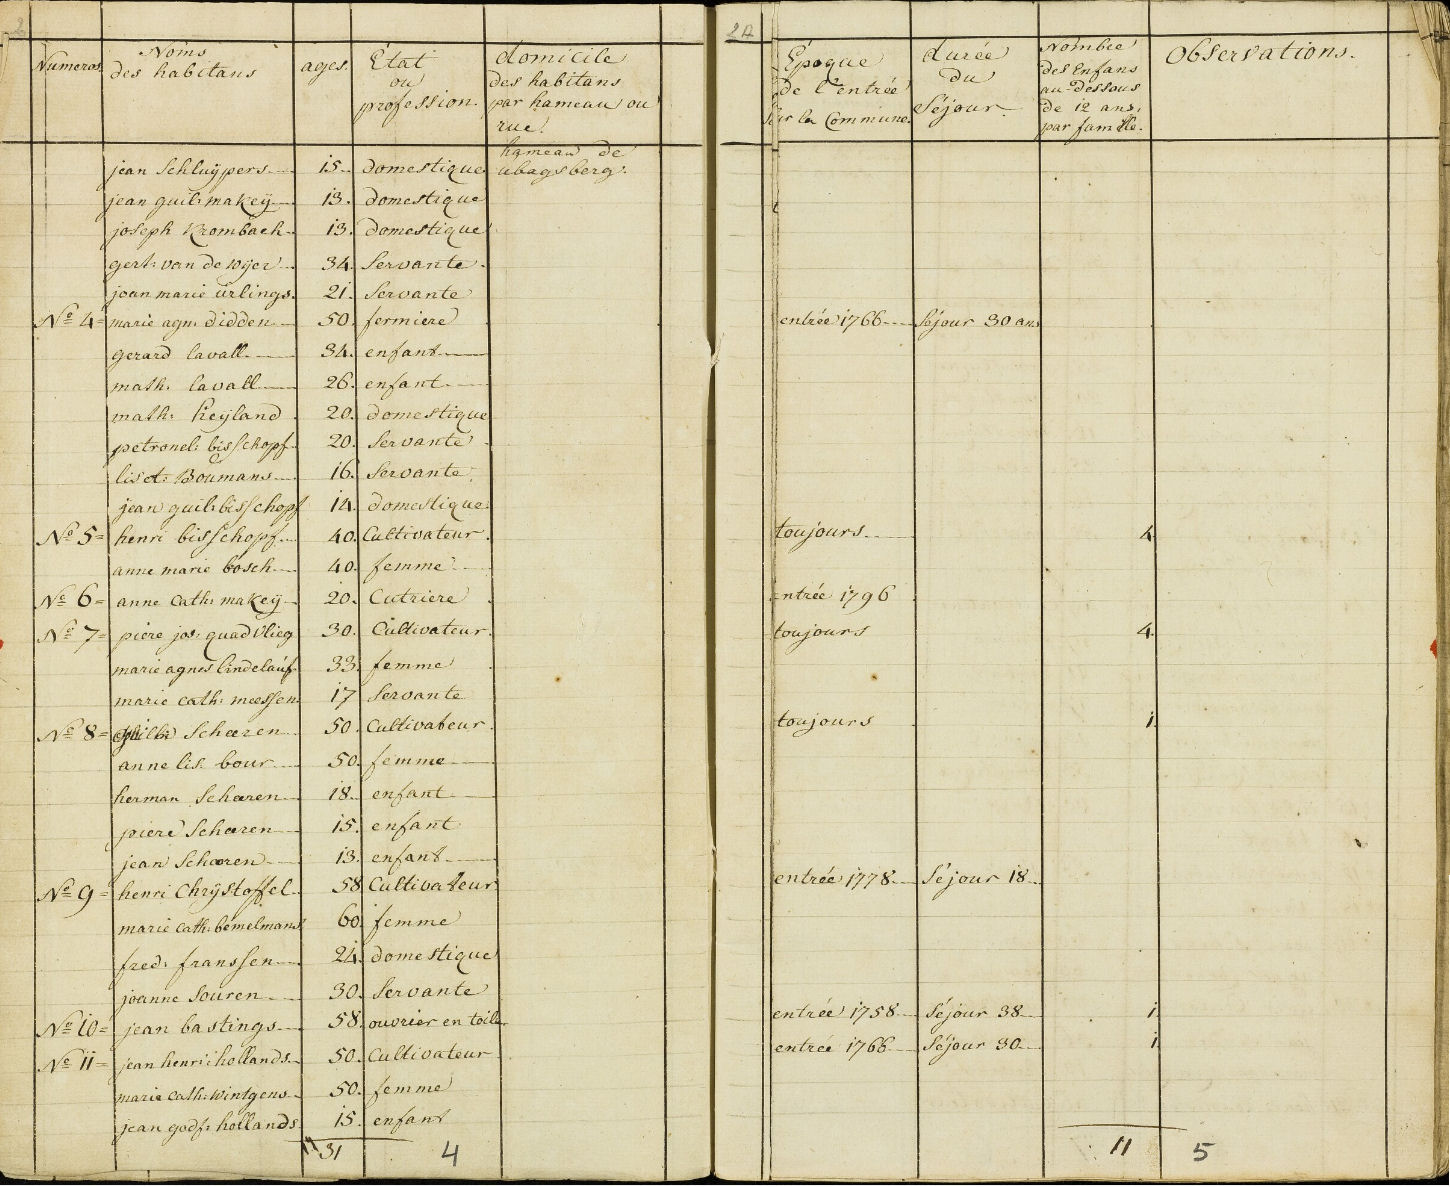 2
2A
Numeros.
Noms
des habitans
ages.
Etat
ou
profession.
domicile
des habitans
par hameau ou
rue.
Epoque
de l'entrée
Sur la Commune.
durée
du
Séjour.
Nombre
des Enfans
au-dessous
de 12 ans,
par famille.
Observations.
hameau de
jean Schluÿpers 15. domestique ubagsberg.
jean guil: makeÿ 13. domestique
joseph Krombach 13. domestique
gert: van de wijer 34. Servante
joan marie ürlings. 21. Servante
No 4= marie agn: didden 50. fermiere entrée 1766 Séjour 30 ans
gerard lavall 34. enfant
math: lavall 26. enfant
math: heÿland 20. domestique
petronel: bisschopf 20. Servante
liset: Boumans 16. Servante
jean guil: bisschopf 14. domestique
No 5= henri bisschopf 40. Cultivateur toujours 4
anne marie bosch 40. femme
No 6= anne Cath: makeÿ 20. Cutriere entrée 1796
No 7= piere jos: quadvlieg 30. Cultivateur toujours 4
marie agnes lindelauf 33. femme
marie cath: meessen 17 Servante
No 8= Scheren 50. Cultivateur toujours 1
anne lis: bour 50. femme
herman Scheren 18. enfant
piere Scheren 15. enfant
jean Scheren 13. enfant
No 9= henri Chrÿstoffel 58 Cultivateur entrée 1778 Séjour 18
marie cath: bemelmans 60. femme
fred: franssen 24. domestique
joanne Souren 30. Servante
No 10= jean bastings 58. ouvrier en toile entrée 1758 Séjour 38 1
No 11= jean henri hollands 50. Cultivateur entrée 1766 Séjour 30 1
marie cath: wintgens 50. femme
jean godf: hollands 15. enfant
31 4 11 5